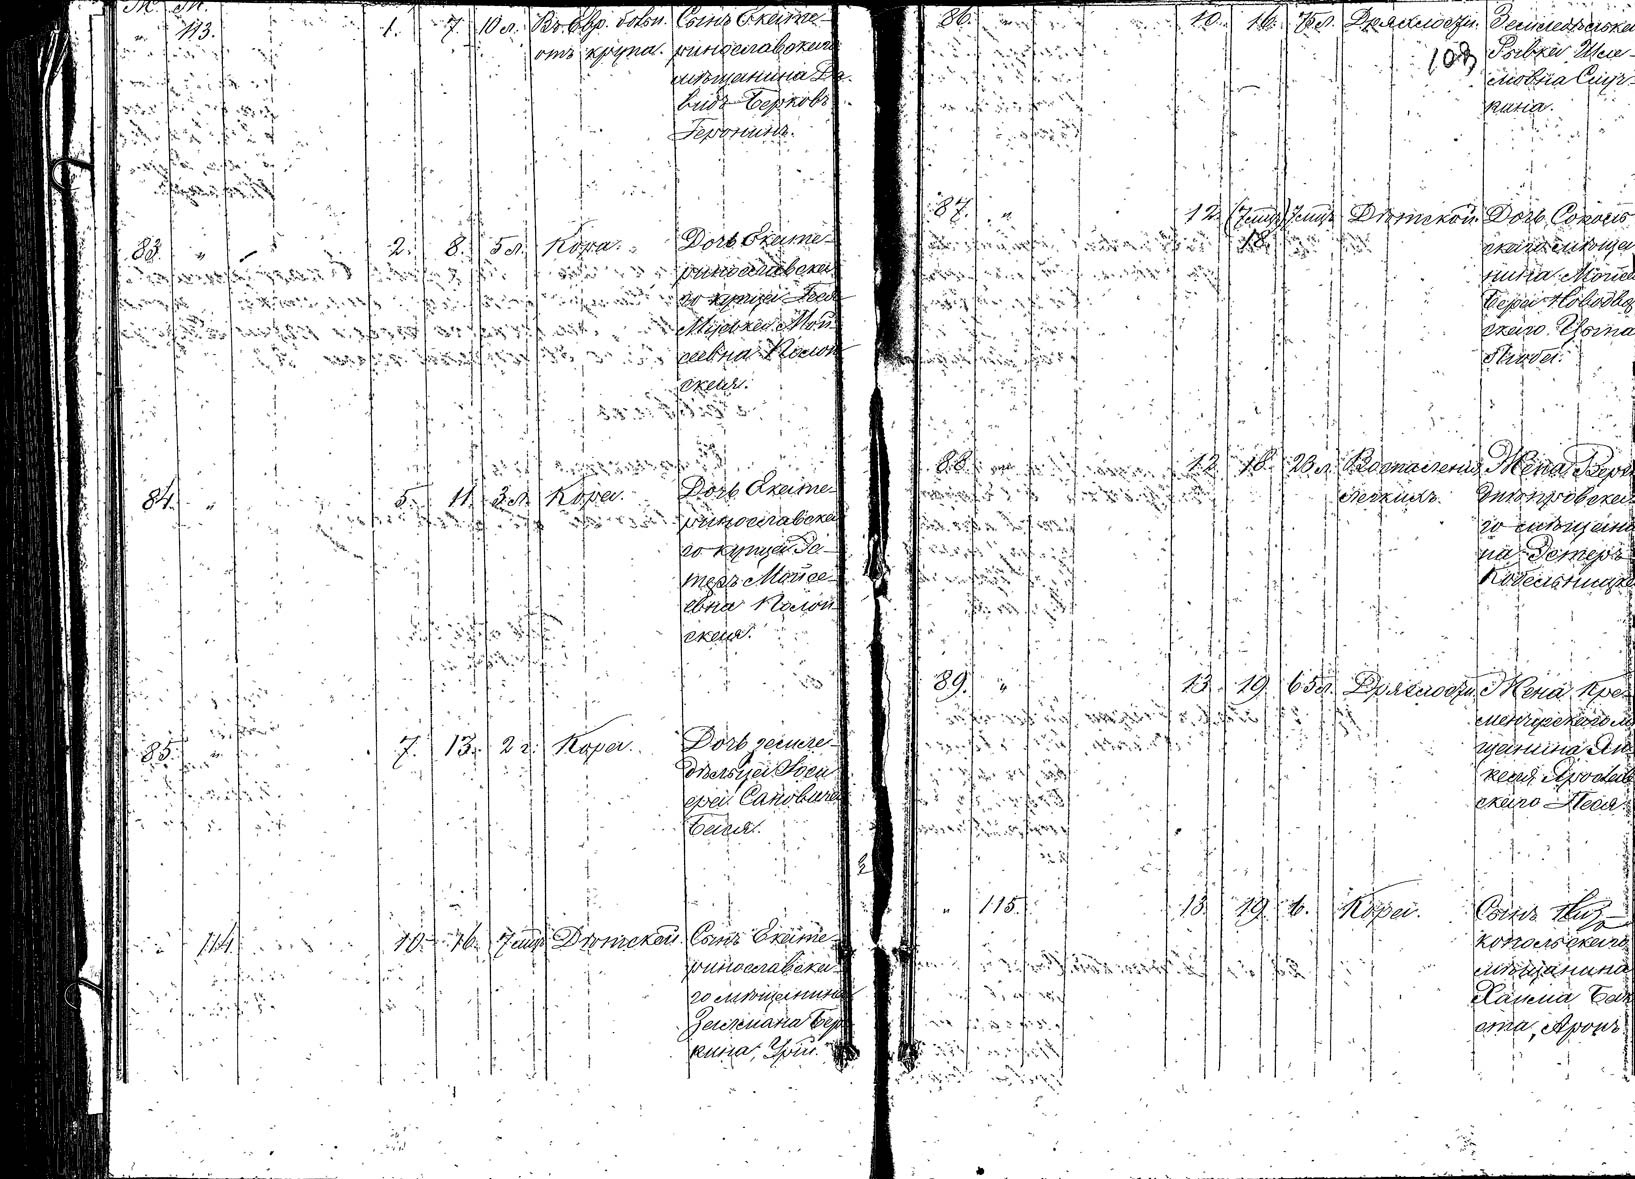 М. М.
" 113. 1. 7. 10 л. Въ Евр. больн. Сынъ Екате-
отъ крупа. ринославскаго
мѣщанина Да-
видъ Берковъ
Геронинъ.
83. " 2. 8. 5 л. Корь. Дочь Екате-
ринославска-
го купца Геся
Мусья Мои-
сеевна Полон-
ская.
84. " 5. 11. 3 л. Корь. Дочь Екате-
ринославска-
го купца Эс-
теръ Мойсе-
евна Полон-
ская.
85. " 7. 13. 2 г. Корь. Дочь земле-
дѣльца
Сановича
Бася.
" 114. 10. 16. 7 мѣс. Дѣтской Сынъ Екате-
ринославска-
го мѣщанина
Залмана Бер-
кина, Урій.
86. 10. 16. 75 л. Дряхлости. Земледѣлька
103 Рывка Шле-
мовна Слуц-
кина.
87. " 12. (7 мѣс.) 7 мѣс. Дѣтской. Дочь Соколь-
18. скаго мѣща-
нина Мойсе
Бера Новодвор-
скаго Цыпа
Люба.
88. " 12. 18. 23 л. Воспаленія Жена Верх-
легкихъ. днѣпровска-
го мѣщани-
на Эстеръ
Кобельницка
89. " 13. 19. 65 л. Дряхлости. Жена Кре-
менчугскаго м
щанина Ян-
келя Ярослав
скаго Песя.
" 115. 13. 19. 6. Корь. Сынъ Ни-
копольскаго
мѣщанина
Хаима Бак
ста, Аронъ